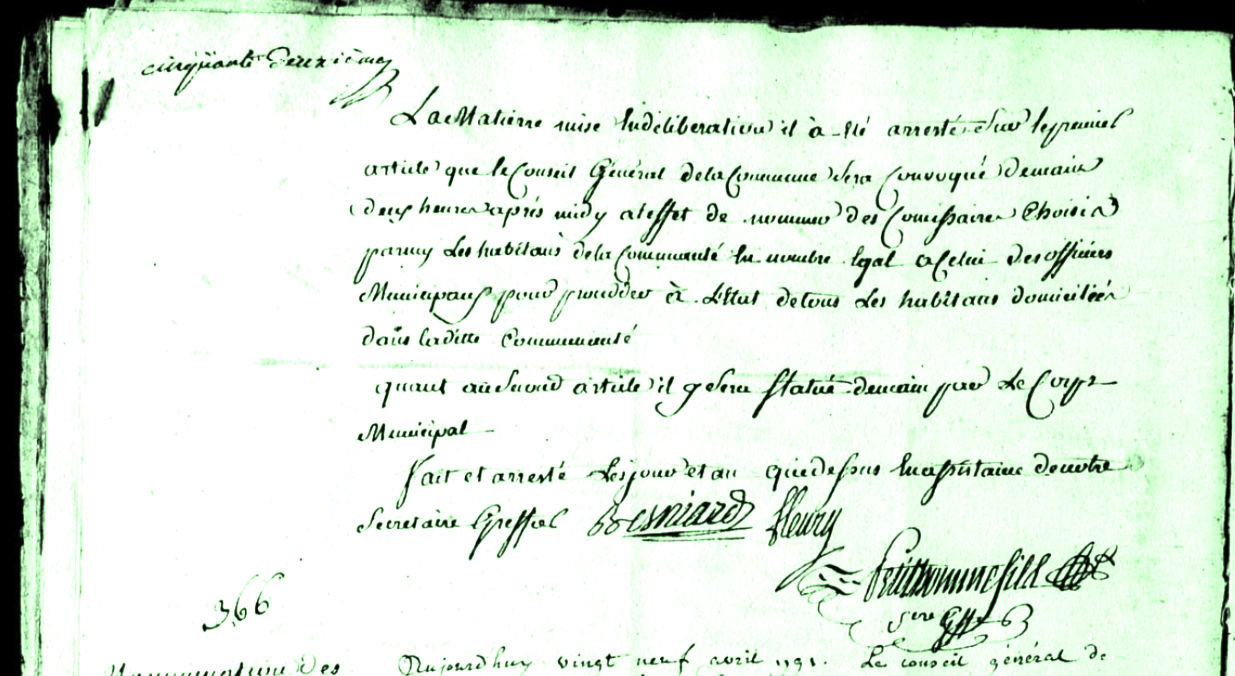 cinquante deuxième
La Matierre mise En deliberation il à été arresté Sur le premier
article que le Conseil Général de la Commune Sera Convoqué demain
deux heures après midy a leffet de nommer des Comissaires Choisis
parmy Les habitans de la Communauté En nombre Egal a Celui des officiers
Municipaux pour proceder à L'Etat de tous Les habitans domiciliés
dans laditte Communauté
quant au Second article il y Sera Statué demain par Le Corps
Municipal
fait et arresté Les jour et an que dessus En assistance de notre
Secretaire Greffier Besniard fleury
Prudhomme fils
Sre Gffr
366
Nommination des
Aujourdhuy vingt neuf avril 1791. Le conseil général de